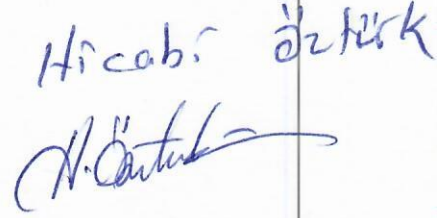 Hicabi Öztürk
H.Öztürk